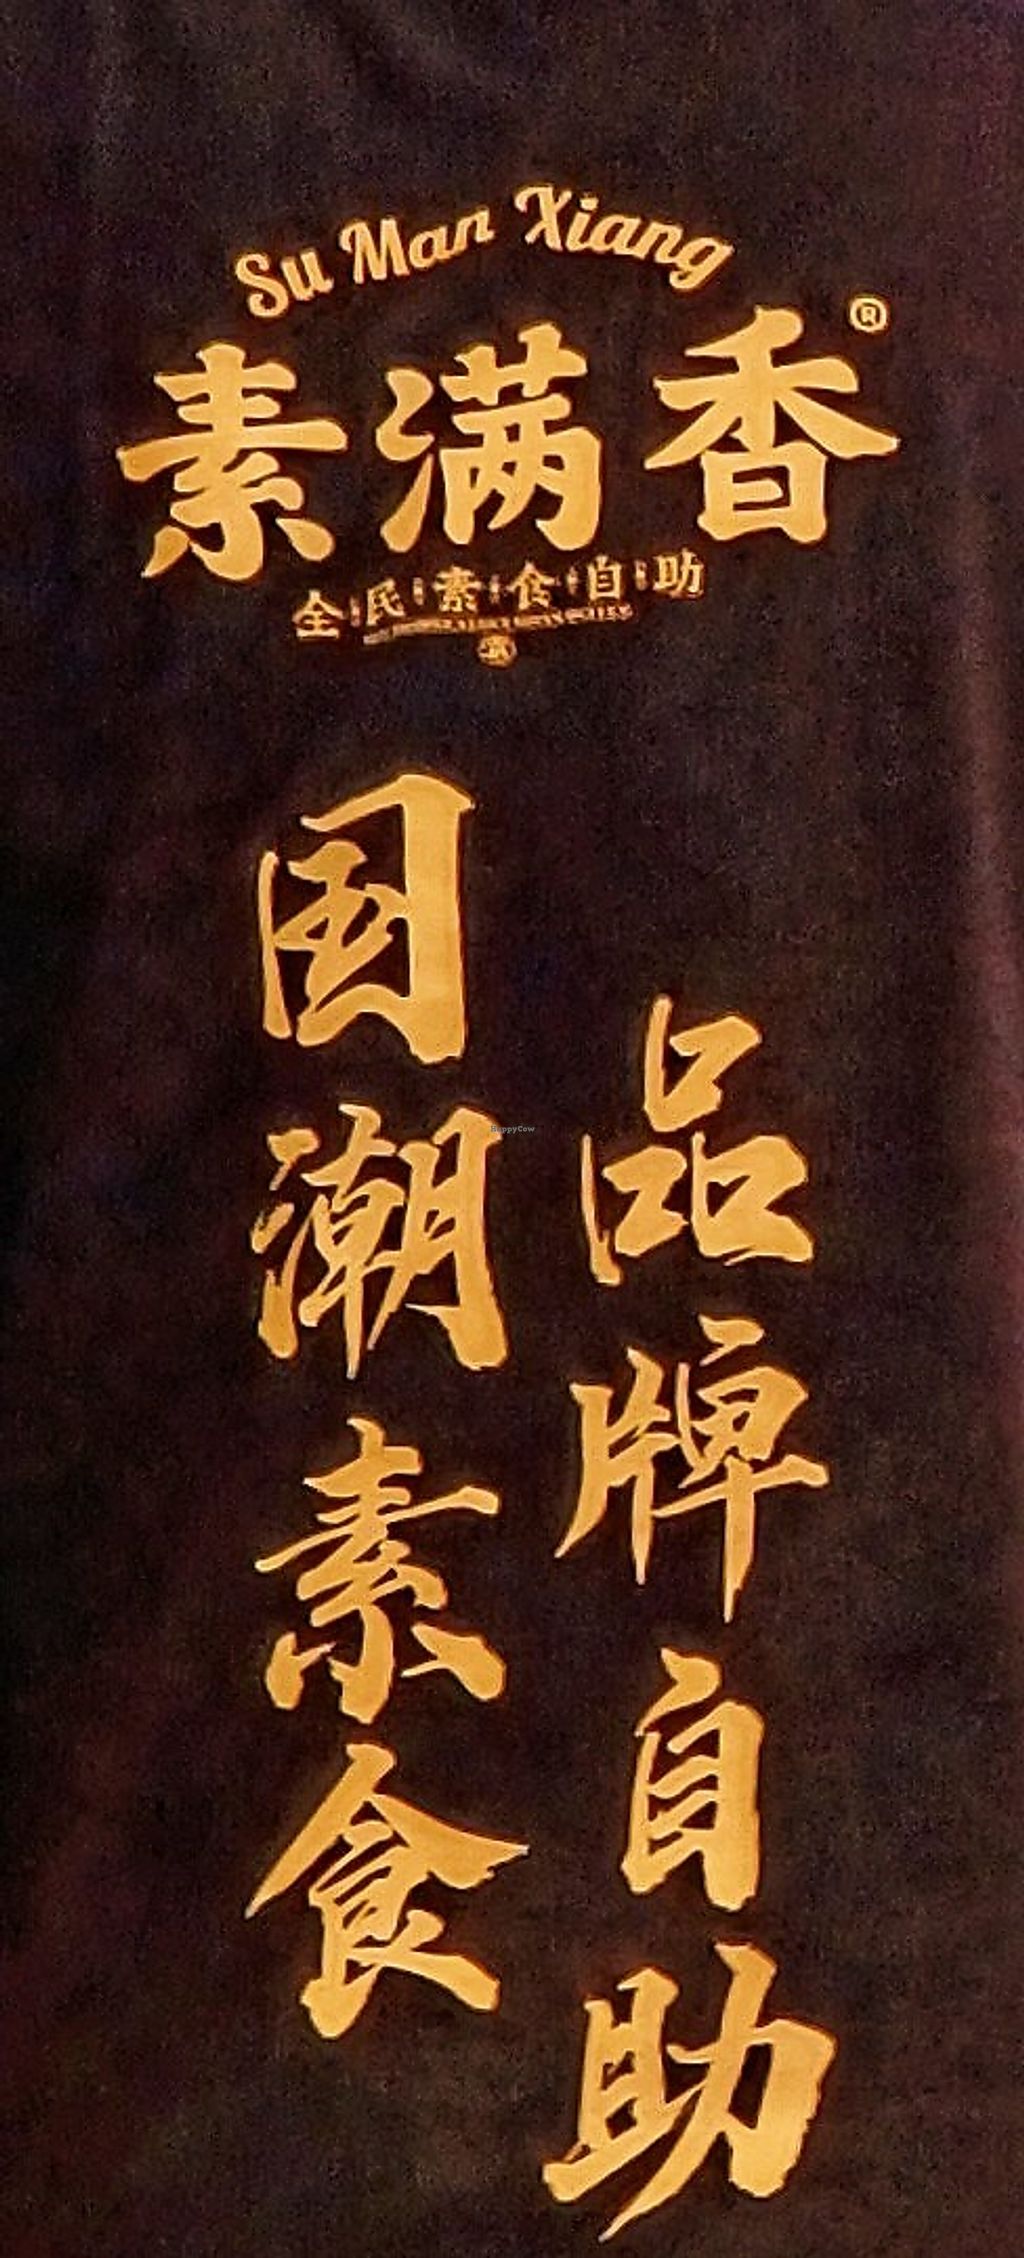 Su Man Xiang
素满香®
全民素食自助
国潮素食
品牌自助
HappyCow